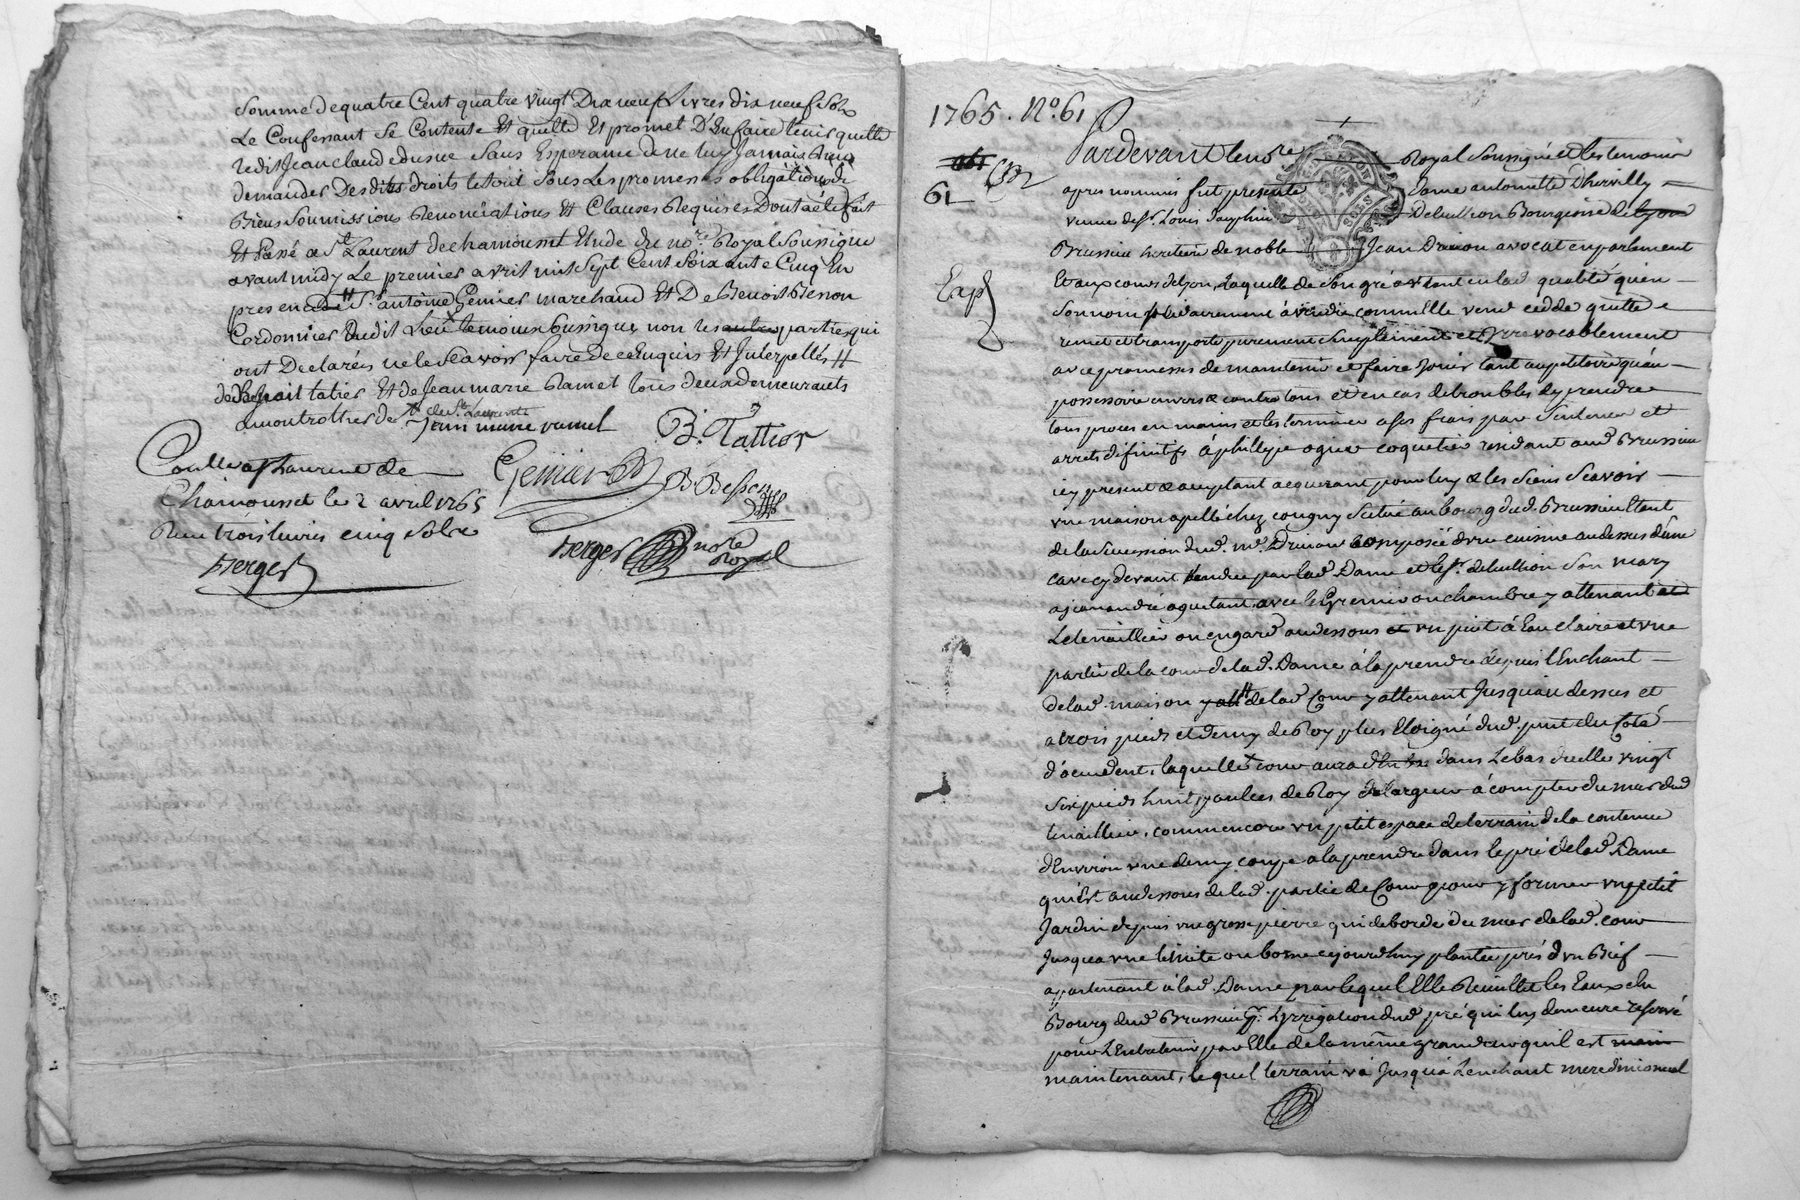 Somme de quatre Cent quatre vingt Dix neuf Livres dix neuf Sols
Le Confessant Se Contente Et quitte Et promet D'En faire tenir quitte
ledit Jean claude dusue Sans Esperance de ne luy Jamais Rien
demander Desdits droits le tout Sous Les promesses obligations de
Biens Soumissions Renonciations Et Clauses Requises Dont acte fait
Et Passé a St Laurent de chamousset Etude du nore Royal Soussigné
avant midy Le premier avril mil Sept Cent Soixante Cinq En
presence de Sr antoine Genier marchand Et De Benoit Besson
Cordonnier dudit Lieu temoins Soussignés non les parties qui
ont Declarés ne le Scavoir faire de ce Enquis Et Interpellés
de Benoit tatier Et de Jean marie Ramet tous deux demeurants
Jean marie ramel
B. Tattier
Conllé a St Laurent de
Chamousset le 2 avril 1765
Reçu trois livres cinq sols
Berger
Genier
B. Besson
Berger nore Royal
1765. No. 61
61
Pardevant le nore Royal Soussigné et les temoins
apres nommés fut presente Dame antoinette D'hervilly
veuve de Sr. Louis Dauphin Debullion Bourgeoise de Lyon
Brussieu heritiere de noble Jean Drivon avocat en parlement
Et aux cours de lyon, Laquelle de Son gré a tant en lad. qualité qu'en
Son nom comme Elle vend cedde quitte
remet et transporte purement Simplement et Irrevocablement
avec promesses de maintenir et faire Jouir tant au petitoire qu'au
possessoire envers & contre tous et en cas de troubles d'y prendre
tous procès en mains et les terminer a Ses frais par Sentences et
arrets difinitifs à philippe ogier coquetier residant aud. Brussieu
icy present & acceptant acquerant pour luy & les Siens Scavoir
une maison apellé chez cougny Scituée au bourg dud. Brussieu Etant
de la Succession dud. me. Drivon composée d'une cuisine au dessus d'une
cave cy devant vendue par lad. Dame et le Sr. debullion Son mary
avec le Grenier ou chambre y attenant
Le tenaillier ou engard au dessous et un puit à Eau claire et une
partie de la cour de lad. Dame à la prendre depuis l'Enchant
de lad. maison de lad. Cour y attenant Jusqu'au dessus et
a trois pieds et demy de Roy plus Eloigné dud. puit du Coté
d'occident, laquelle cour aura dans Le bas d'icelle vingt
Six pieds huit poulces de Roy de largeur à compter du mur dud.
tenaillier, comme encore un petit espace de terrain de la contenue
d'Environ une demy coupe a la prendre dans le pré de lad. Dame
qui Est au dessous de lad. partie de Cour pour y former un petit
Jardin depuis une grosse pierre qui deborde du mur de lad. cour
Jusqu'a une limite ou borne cejourdhuy plantée près d'un Bief
appartenant à lad. Dame par lequel Elle Recuillet les Eaux du
Bourg dud. Brussieu pr. L'Irrigation dud. pré qui luy demeure reservé
pour L'Entretenir par Elle de la même grandeur qu'il est
maintenant, lequel terrain va Jusqu'à L'enchant meredionnal